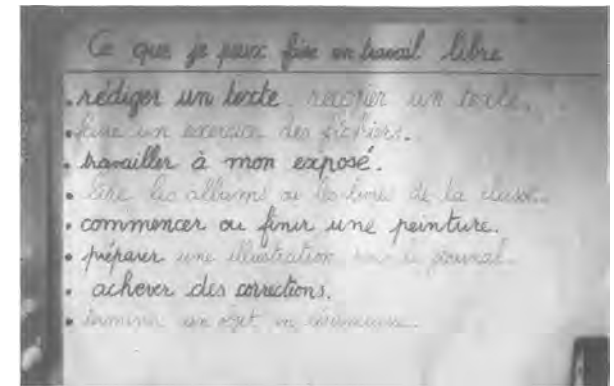 Ce que je peux faire en travail libre
• rédiger un texte. recopier un texte.
• faire un exercice des fichiers.
• travailler à mon exposé.
• lire les albums ou les livres de la classe.
• commencer ou finir une peinture.
• préparer une illustration pour le journal.
• achever des corrections.
• terminer un objet en